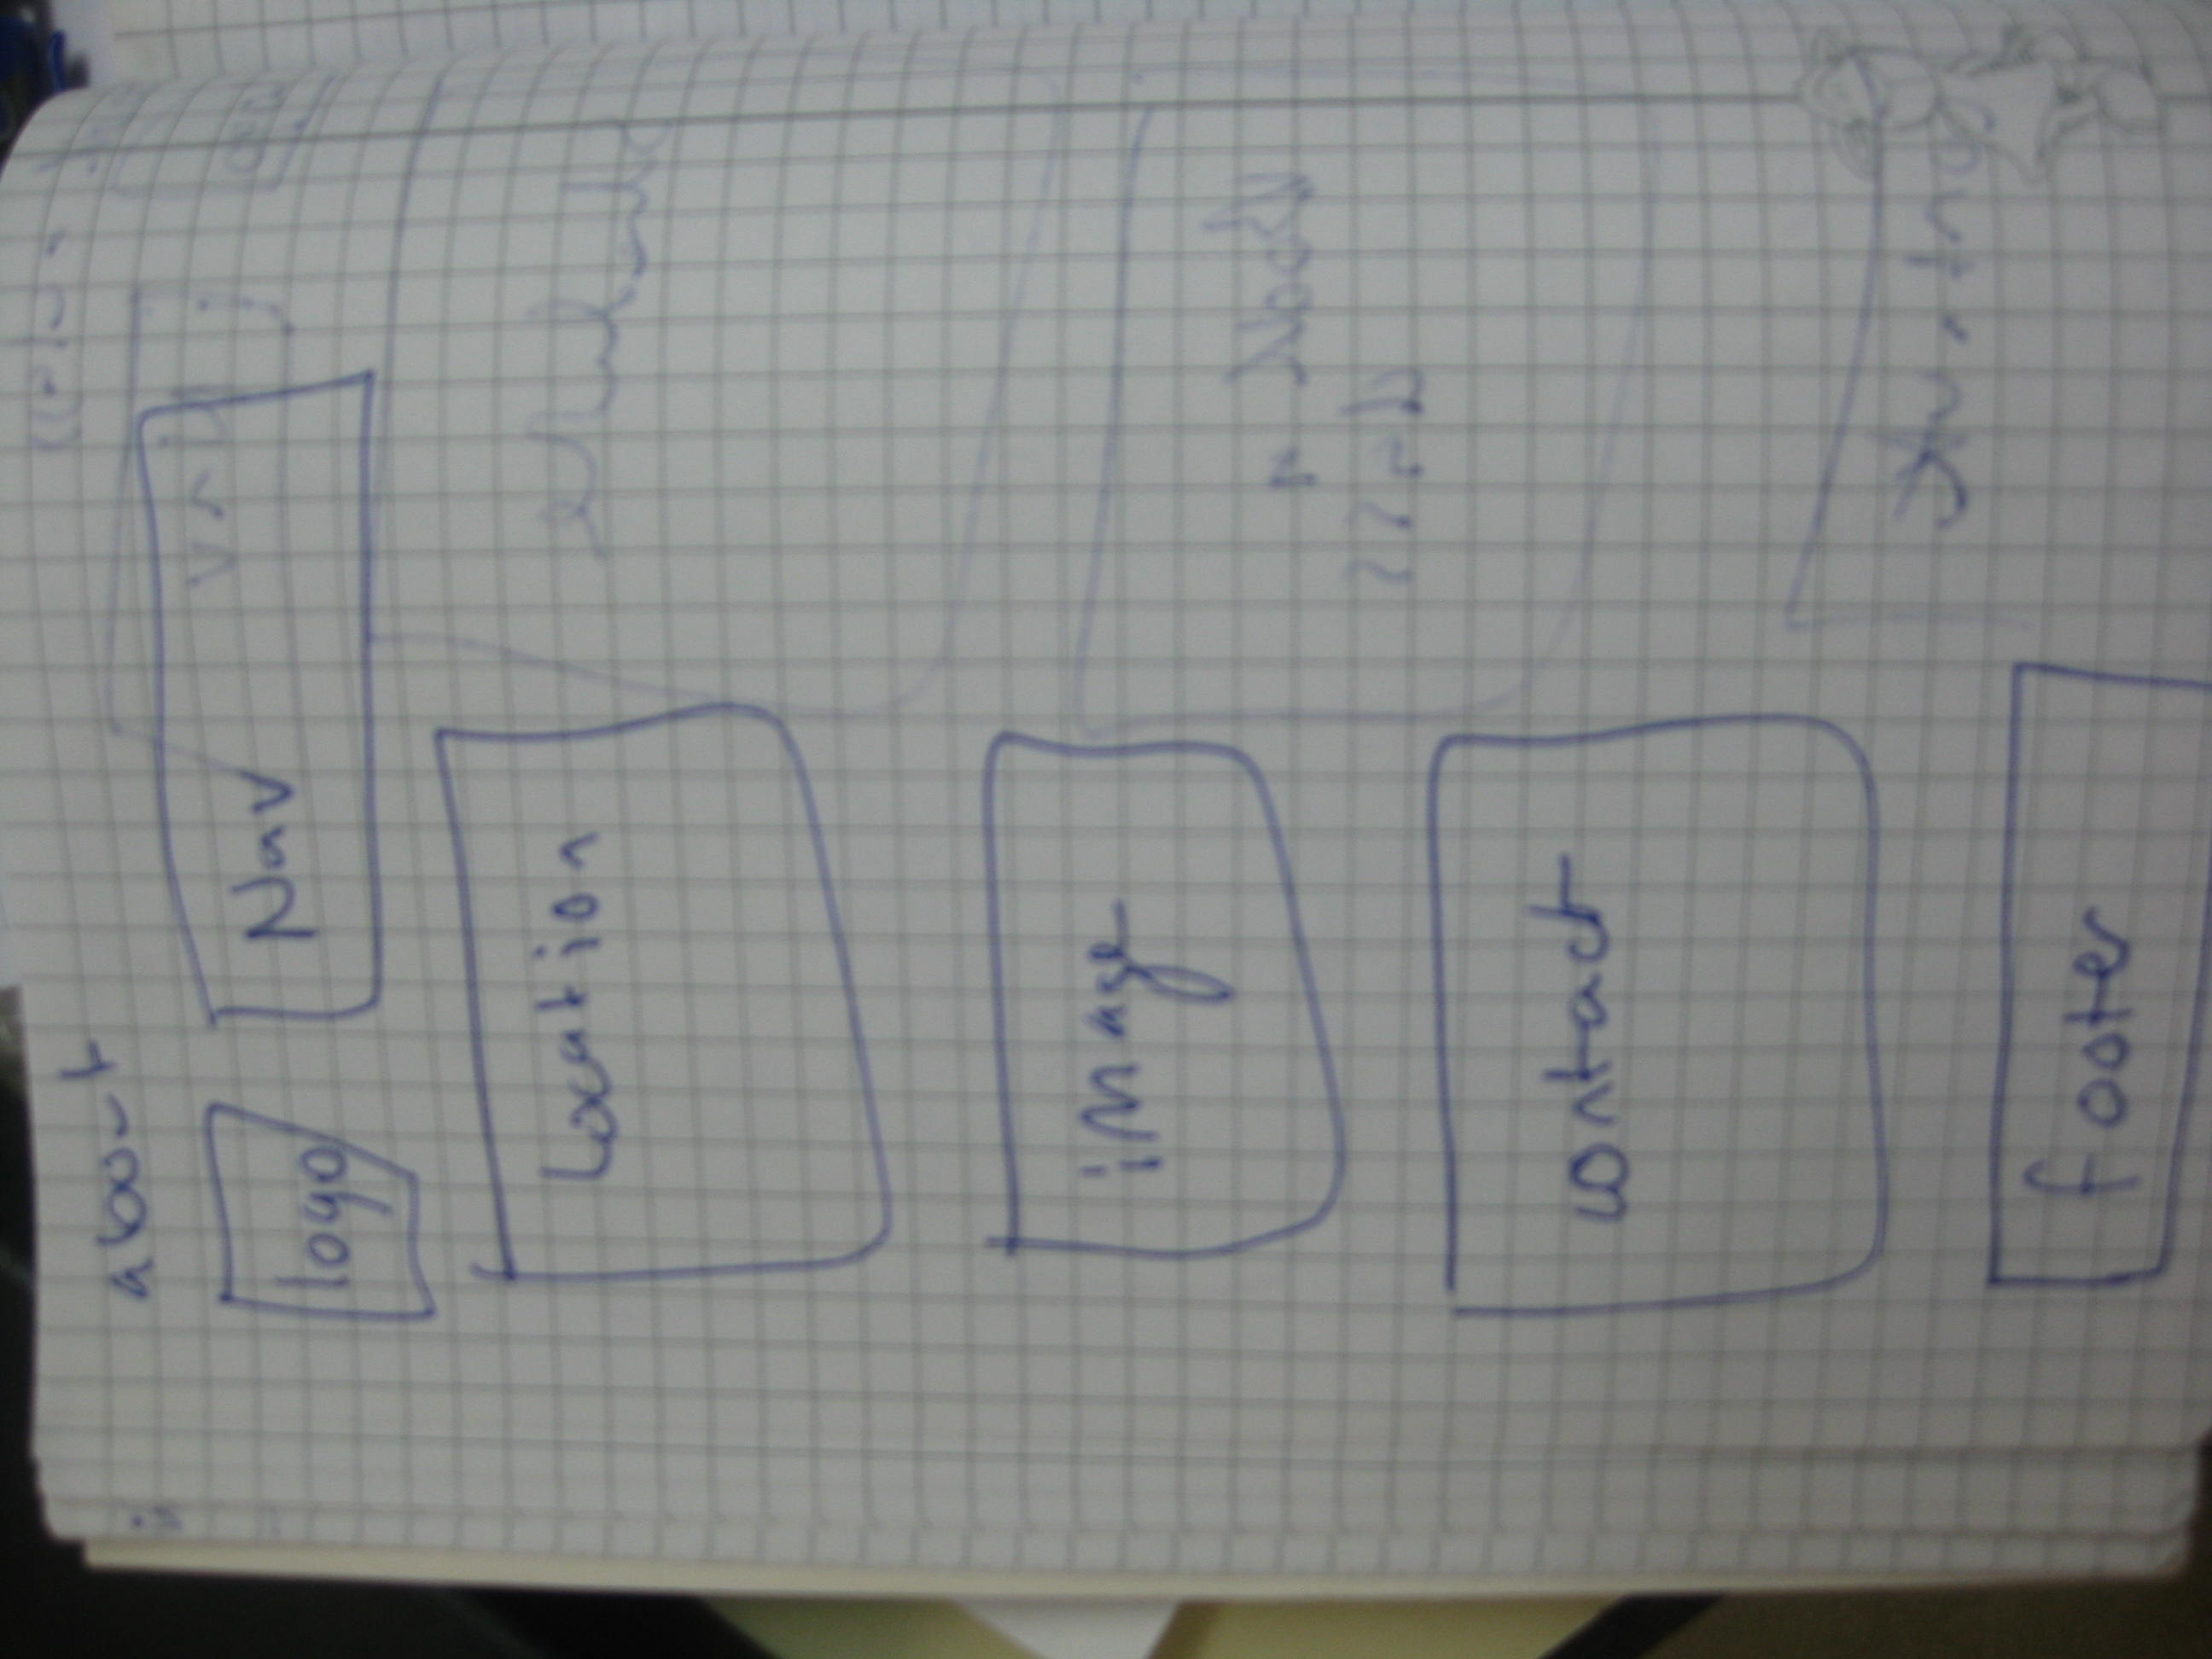 about
logo Nav
Location
image
contact
footer